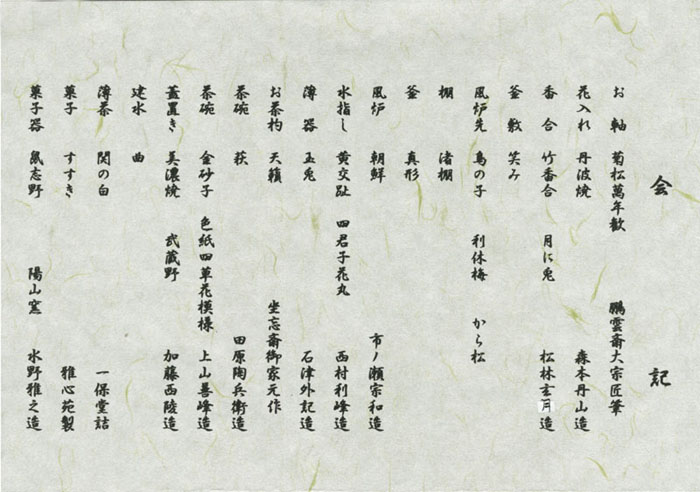 会記
お軸 菊松萬年歓 鵬雲斎大宗匠筆
花入れ 丹波焼 森本丹山造
香合 竹香合 月に兎 松林玄月造
釜敷 笑み
風炉先 鳥の子 利休梅 から松
棚 渚棚
釜 真形
風炉 朝鮮 市ノ瀬宗和造
水指し 黄交趾 四君子花丸 西村利峰造
薄器 玉兎 石津外記造
お茶杓 天籟 坐忘斎御家元作
茶碗 萩 田原陶兵衛造
茶碗 金砂子 色紙四草花模様 上山善峰造
蓋置き 美濃焼 武蔵野 加藤西陵造
建水 曲
薄茶 関の白 一保堂詰
菓子 すすき 雅心苑製
菓子器 鼠志野 陽山窯 水野雅之造